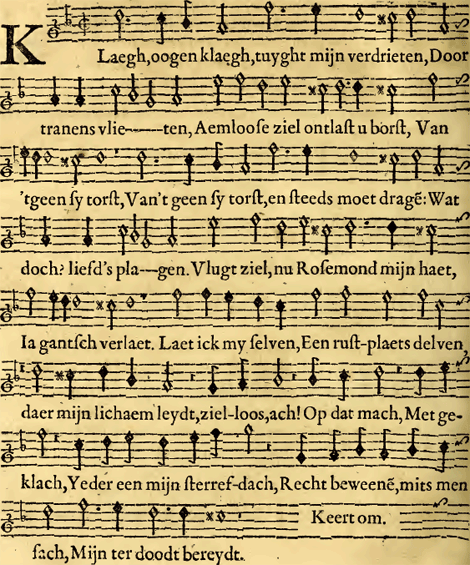 KLaegh,oogen klaegh,tuyght mijn verdrieten,Door
tranens vlie-----ten, Aemloose ziel ontlaſt u borſt, Van
'tgeen ſy torſt,Van't geen ſy torſt,en ſteeds moet dragẽ: Wat
doch? liefd's pla---gen. Vlugt ziel,nu Roſemond mijn haet,
Ia gantſch verlaet. Laet ick my ſelven,Een ruſt-plaets delven
daer mijn lichaem leydt,ziel-loos,ach! Op dat mach, Met ge-
klach,Yeder een mijn ſterref-dach, Recht beweenẽ,mits men
ſach,Mijn ter doodt bereydt.
Keert om.